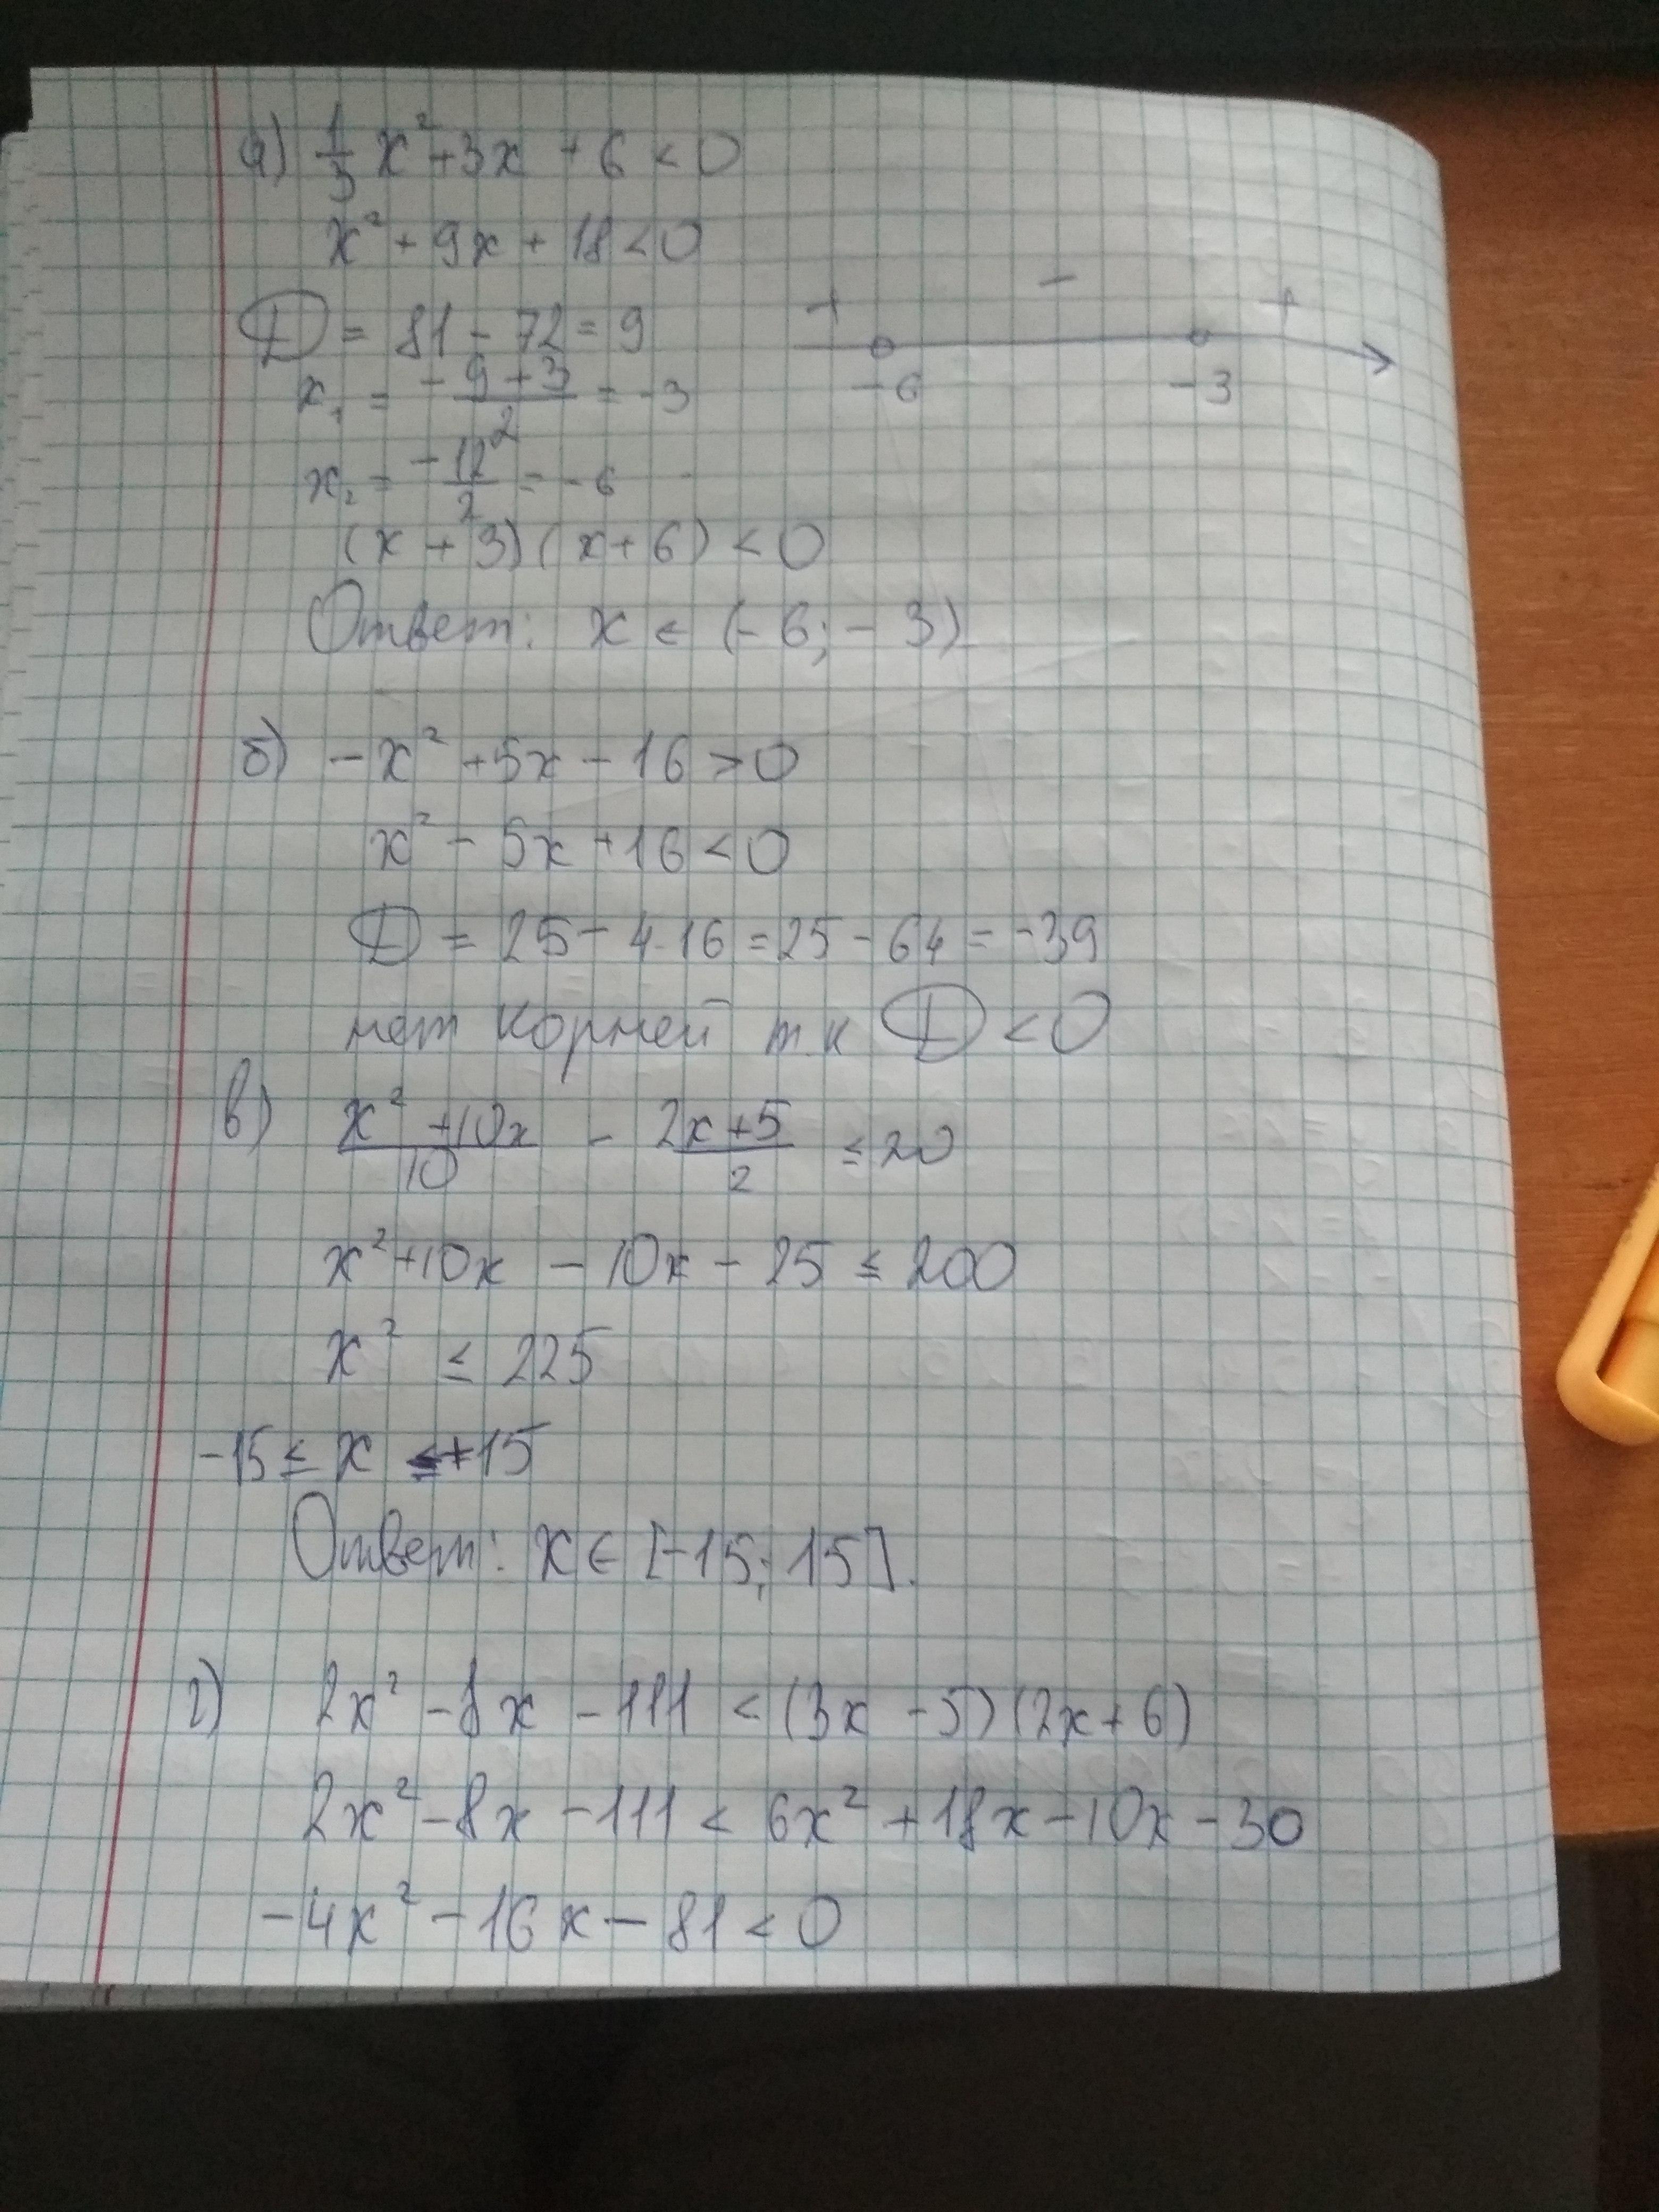 а) 1/3 x² + 3x + 6 < 0
x² + 9x + 18 < 0
D = 81 - 72 = 9
+ - +
-6 -3
x₁ = (-9+3)/2 = -3
x₂ = -12/2 = -6
(x + 3)(x + 6) < 0
Ответ: x ∈ (-6; -3)
б) -x² + 5x - 16 > 0
x² - 5x + 16 < 0
D = 25 - 4·16 = 25 - 64 = -39
нет корней т.к D < 0
в) (x² + 10x)/10 - (2x + 5)/2 ≤ 20
x² + 10x - 10x - 25 ≤ 200
x² ≤ 225
-15 ≤ x ≤ +15
Ответ: x ∈ [-15; 15].
г) 2x² - 8x - 111 < (3x - 5)(2x + 6)
2x² - 8x - 111 < 6x² + 18x - 10x - 30
-4x² - 16x - 81 < 0